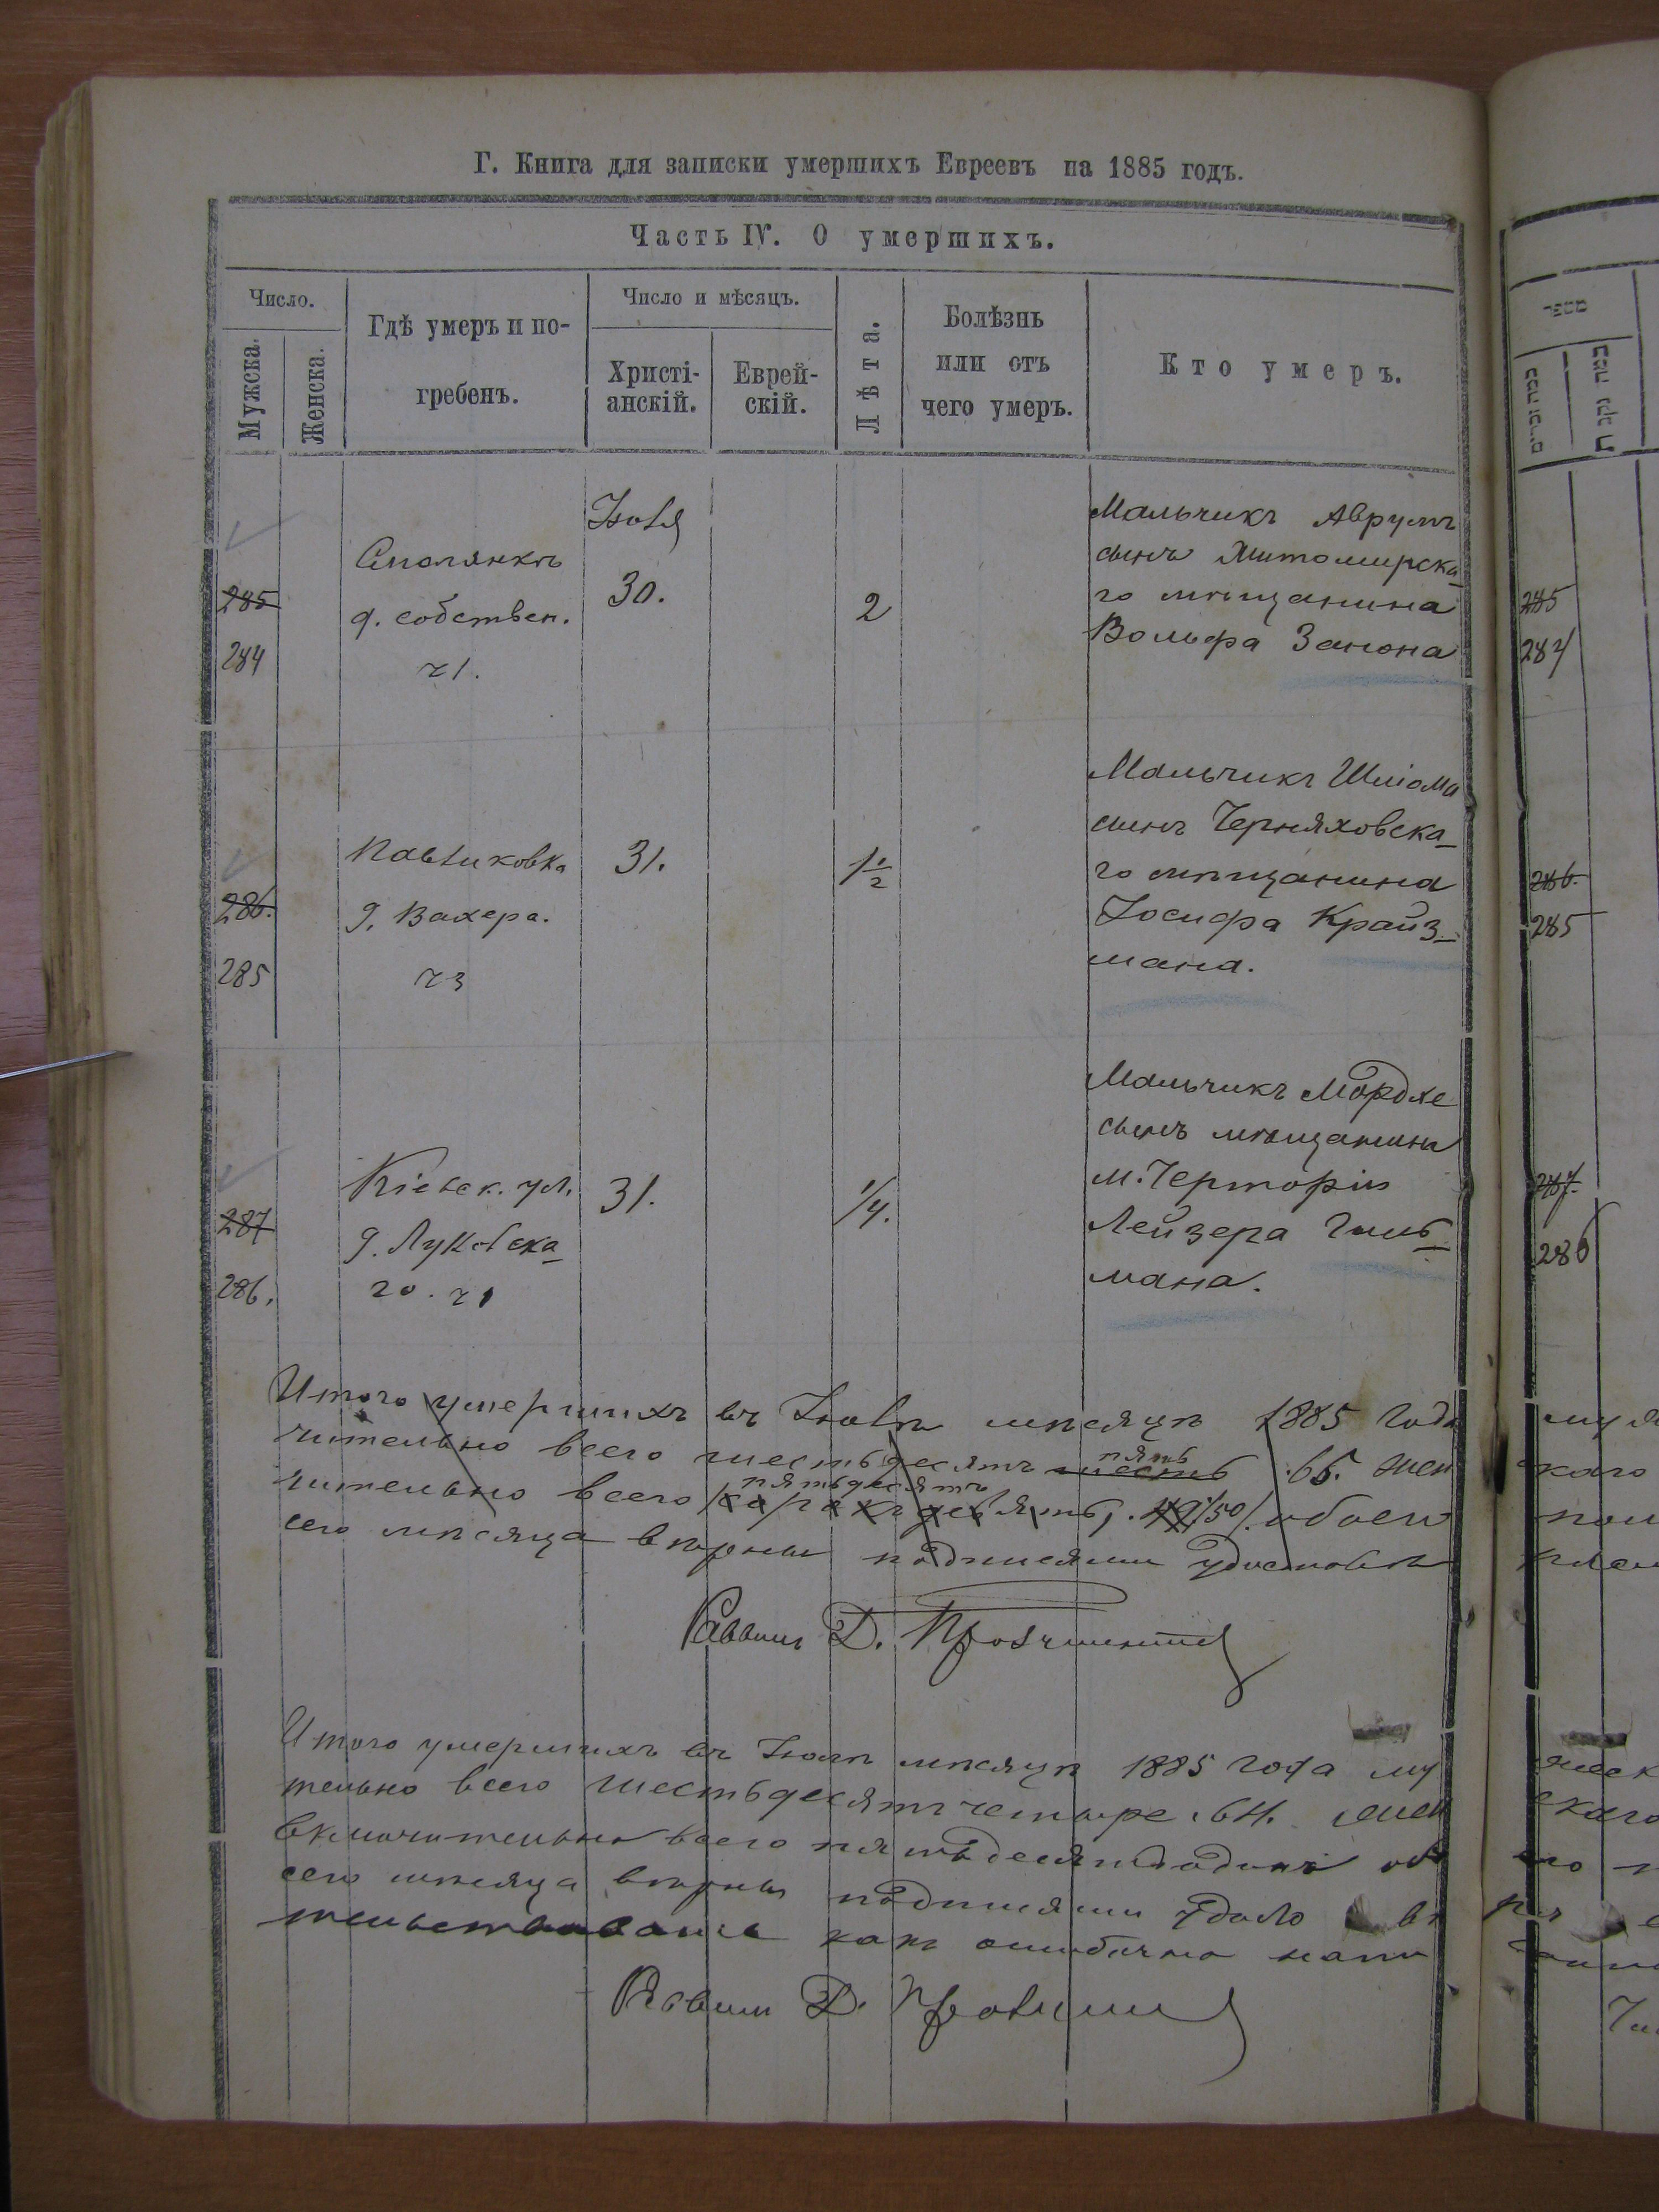 Г. Книга для записки умершихъ Евреевъ на 1885 годъ.
Часть IV. О умершихъ.
Число.
Мужска.
Женска.
Гдѣ умеръ и по-
гребенъ.
Число и мѣсяцъ.
Христі-
анскій.
Еврей-
скій.
Лѣта.
Болѣзнь
или отъ
чего умеръ.
Кто умеръ.
285
284
Смолянкѣ
д. собствен.
ч1.
Іюля
30.
2
Мальчикъ Аврумъ
сынъ Житомирска-
го мѣщанина
Вольфа Занона
285
284
286.
285
Павликовка
д. Вахера.
ч3
31.
1 1/2
Мальчикъ Шліома
сынъ Черняховска-
го мѣщанина
Іосифа Крайз-
мана.
286.
285
287
286.
Кіевск. ул.
д. Луковска-
го. ч1
31.
1/4.
Мальчикъ Мордхе
сынъ мѣщанина
м. Чертория
Лейзера Гиль-
мана.
287.
286
Итого умершихъ въ Іюлѣ мѣсяцѣ 1885 года
чительно всего шестьдесятъ шесть пять .65. жен
чительно всего сорокъ девять, пятьдесятъ .49/50/. обоего
сего мѣсяца вѣрны подписями удостовѣ
Раввинъ Д.
Итого умершихъ въ Іюлѣ мѣсяцѣ 1885 года му
тельно всего шестьдесятъ четыре .64. жен
включительно всего пятьдесятъ одинъ обо
сего мѣсяца вѣрны подписями удосто
какъ ошибочно напи
Раввинъ Д.